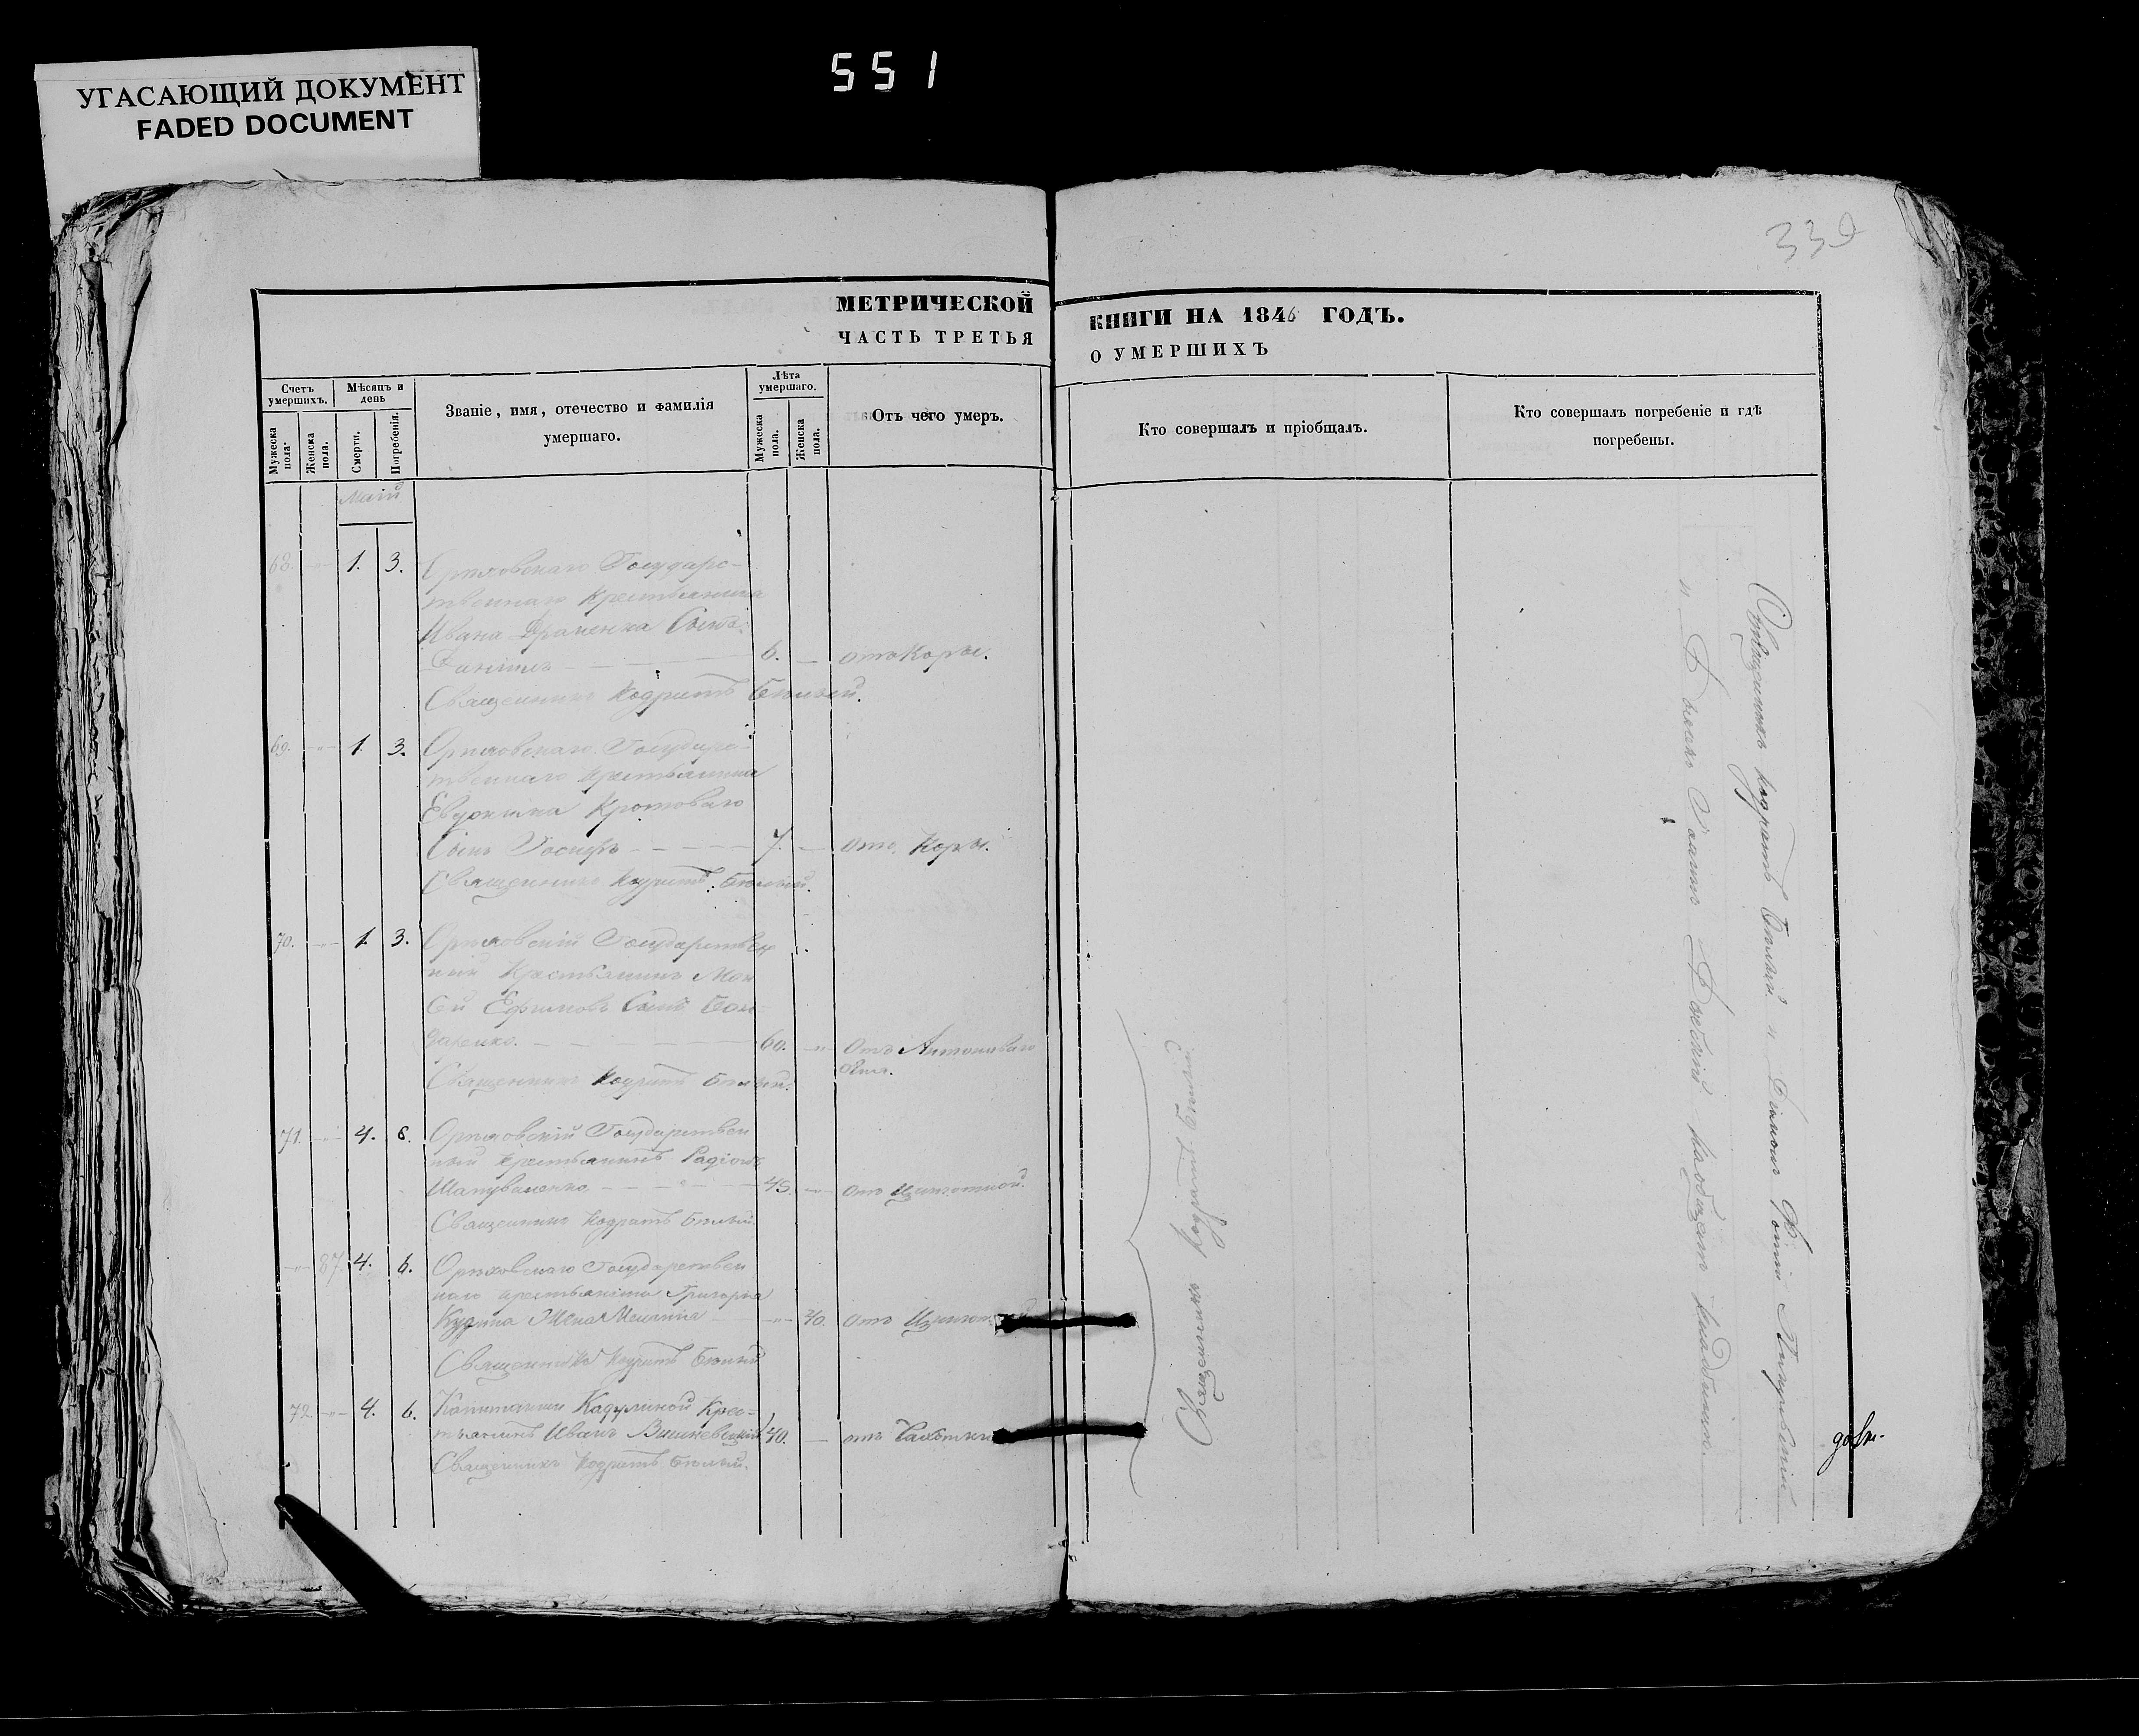 551
УГАСАЮЩИЙ ДОКУМЕНТ
FADED DOCUMENT
339
МЕТРИЧЕСКОЙ
ЧАСТЬ ТРЕТЬЯ
КНИГИ НА 1846 ГОДЪ.
О УМЕРШИХЪ
Счетъ умершихъ.
Мужеска пола.
Женска пола.
Мѣсяцъ и день
Смерти.
Погребенія.
Званіе, имя, отечество и фамилія
умершаго.
Лѣта умершаго.
Мужеска пола.
Женска пола.
Отъ чего умеръ.
Кто совершалъ и пріобщалъ.
Кто совершалъ погребеніе и гдѣ
погребены.
Маій
68. 1. 3. Орѣховскаго Государс-
твеннаго крестьянина
Ивана Сынъ
Даніилъ 6. отъ Коры.
Священникъ Кодратъ Бѣлый.
69. 1. 3. Орѣховскаго Государс-
твеннаго крестьянина
Евдокима Кротоваго
Сынъ Іосифъ 7. отъ Коры.
Священникъ Кодратъ Бѣлый.
70. 1. 3. Орѣховскій Государствен
ный Крестьянинъ Мои
сей Ефимовъ Сынъ Бон-
даренко. 60. Отъ Антоноваго
Огня.
Священникъ Кодратъ Бѣлый.
71. 4. 6. Орѣховскій Государствен
ный крестьянинъ Радіонъ
Шаповаленко 45. отъ Цынготной.
Священникъ Кодратъ Бѣлый.
87. 4. 6. Орѣховскаго Государствен
наго крестьянина Григорія
Жена 40. отъ Цынгот
Священникъ Кодратъ Бѣлый
72. 4. 6. Капитанши Кадулиной Крес-
тьянинъ Иванъ Вишневецкій 40. отъ Чахотки
Священникъ Кодратъ Бѣлый.
Священникъ Кодратъ Бѣлый
Священникъ Кодратъ Бѣлый и Діаконъ
и кладбищахъ